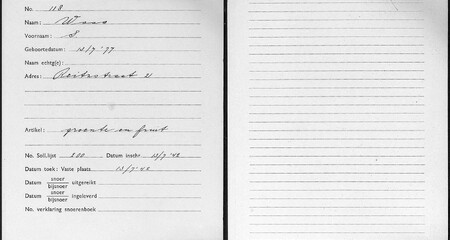 No. 118
Naam: Waas
Voornaam: S.
Geboortedatum: 13/7 '77
Naam echtg(e):
Adres: Reitzstraat 21
Artikel: groente en fruit
No. Soll.lijst 200 Datum inschr. 13/7 '42
Datum toek: Vaste plaats 13/7 '42
Datum snoer/bijsnoer uitgereikt
Datum snoer/bijsnoer ingeleverd
No. verklaring snoerenboek